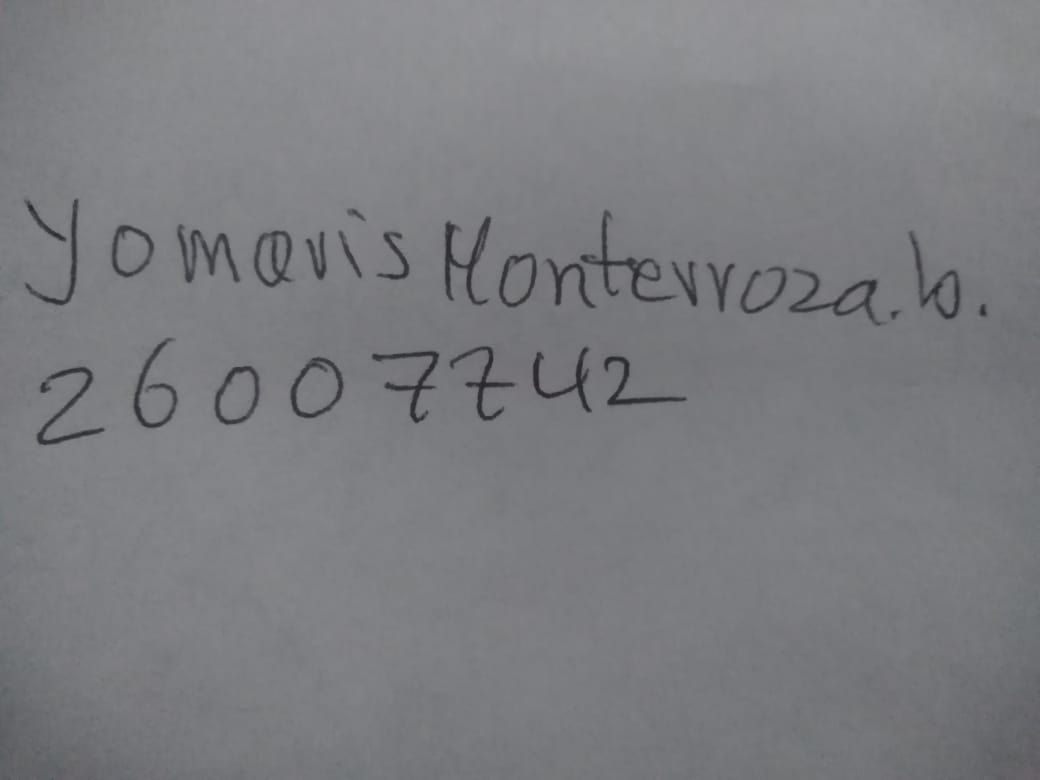 Yomaris Monterroza.b.
26007742